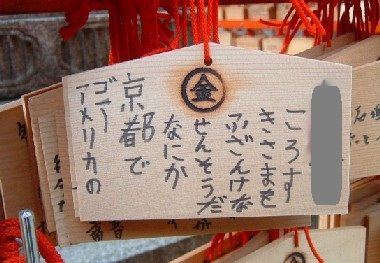 金
ころす
きさまを
ふざんけな
せんそうだ
なにか
京都で
ゴニー
アメリカの